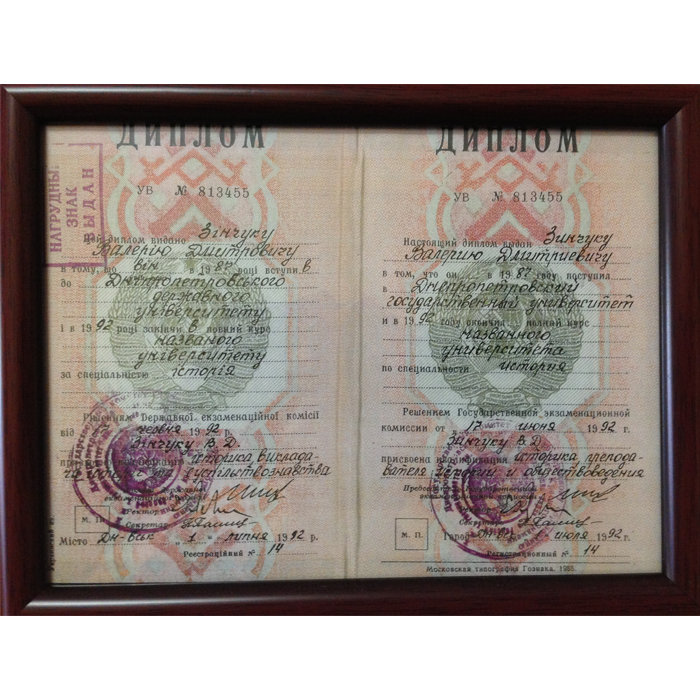 НАГРУДНЫЙ
ЗНАК
ВЫДАН
ДИПЛОМ
УВ № 813455
Цей диплом видано Зінчуку
Валерію Дмитровичу
в тому, що він в 1987 році вступив
до Дніпропетровського
державного
університету
і в 1992 році закінчив повний курс
названого
університету
за спеціальністю історія
Рішенням Державної екзаменаційної комісії
від червня 1992 р.
Зінчуку В. Д.
історика, виклада-
суспільствознавства
Ректор
Секретар
М. П.
Місто Дн-вськ „1" липня 1992 р.
Реєстраційний № 14
ДИПЛОМ
УВ № 813455
Настоящий диплом выдан Зинчуку
Валерию Дмитриевичу
в том, что он в 1987 году поступил
в Днепропетровский
государственный университет
и в 1992 году окончил полный курс
названного
университета
по специальности история
Решением Государственной экзаменационной
комиссии от 17 июня 1992 г.
Зинчуку В. Д.
присвоена квалификация историка, препода-
вателя истории и обществоведения
Председатель Государственной
экзаменационной комиссии
Ректор
Секретарь
М. П.
Город июля 1992 г.
Регистрационный № 14
Московская типография Гознака. 1988.